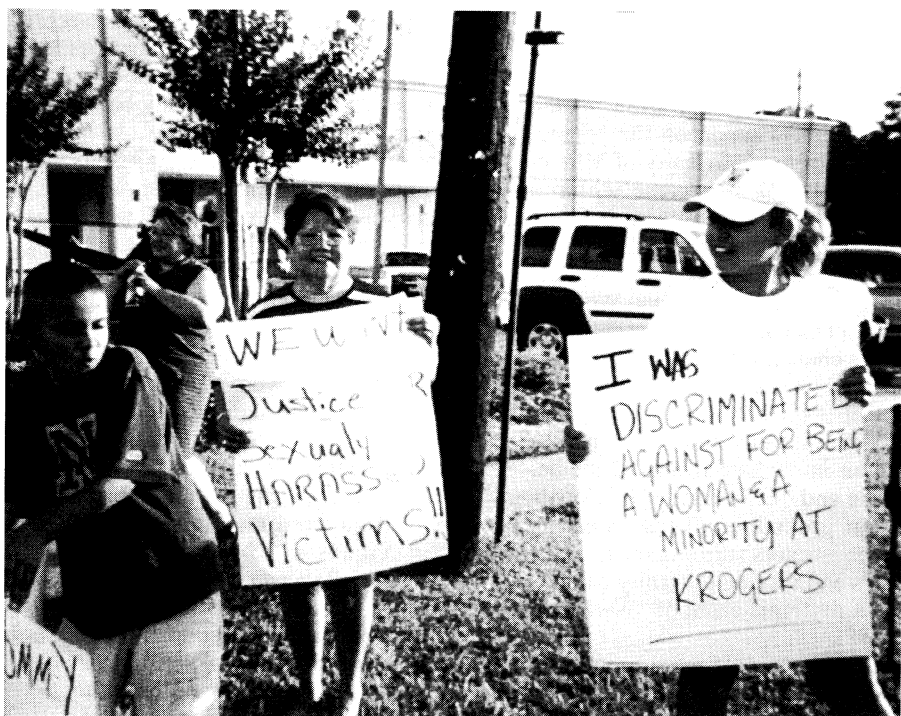 WE WANT
Justice
Sexualy
HARASSED
Victims!!
I WAS
DISCRIMINATED
AGAINST FOR BEING
A WOMAN & A
MINORITY AT
KROGERS
OMMY
N